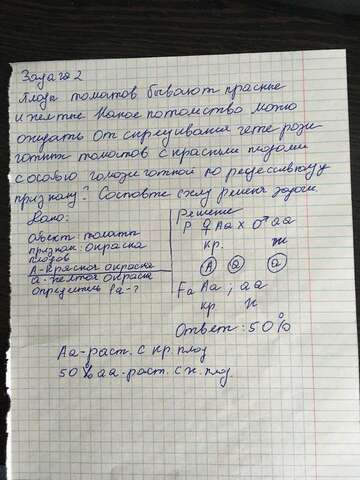 Задача 2
Плоды томатов бывают красные
и желтые. Какое потомство можно
ожидать от скрещивания гетерози-
готных томатов с красными плодами
с особью гомозиготной по рецессивному
признаку? Составьте схему решения задачи.
Дано:
Объект: томаты
признак: окраска
плодов
А-красная окраска
а-желтая окраска
определить Fa-?
Решение
P ♀ Aa x ♂ aa
кр. ж
A a a
Fa Aa ; aa
кр. ж
Ответ: 50%
Аа-раст. с кр плод
50% аа-раст. с ж. плод.